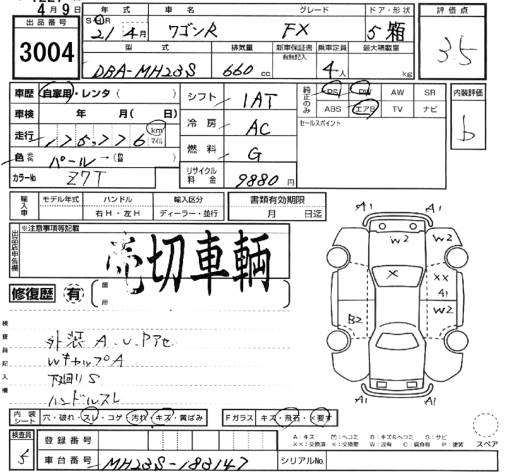 4月9日
出品番号
3004
年式 車名 グレード ドア・形状
S・H 21年 4月 ワゴンR FX 5 箱
型式 排気量 新車保証書 有無記入 乗車定員 最大積載量
DBA-MH23S 660cc 4人 kg
評価点
3.5
車歴 自家用・レンタ ( )
車検 年 月( 日)
走行 km マイル
色 パール → ( )
カラーNo Z7T
シフト 1AT
冷房 AC
燃料 G
リサイクル料金 9880円
純正のみ PS PW AW SR
ABS エアB TV ナビ
セールスポイント
内装評価
b
輸入車 モデル年式 ハンドル 輸入区分
右H・左H ディーラー・並行
書類有効期限
月 日迄
出品店申告欄
※注意事項等記載
売切車輌
修復歴 有 箇所
検査員記入欄
外装A.U.Pアセ
WキャップA
下廻りS
ハンドルスレ
A1 A1
W2 W2
X XX
A1
B2 W2
A1 A1
内装シート 穴・破れ・スレ・コゲ 汚れ・キズ・黄ばみ
Fガラス キズ・飛石・×要す
検査員 5
登録番号
車台番号 MH23S-183147
シリアルNo.
A:キズ U:ヘコミ B:キズ&ヘコミ S:サビ
XX:交換済 X:要交換 W:波有 C:腐食有 P:塗装
スペア